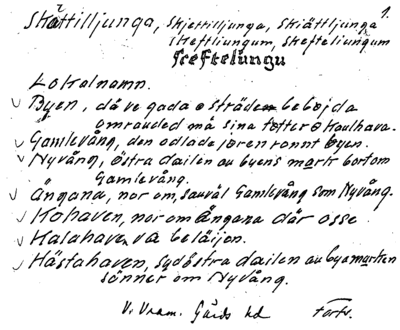 1.
Skåttilljunga, Skjettilljunga, Skiåttljunga
Skeftliungum, Skefteliungum
Skeftelungu
Lokalnamn.
Byen, dä ve gada o sträden bebojda
omraued må sina tofter o Kaulhava.
Gamlevång, den odlade joren ronnt byen.
Nyvång, östra dailen au byens mark bortom
Gamlevång.
Ängana, nor om, sauväl Gamlevång som Nyvång.
Kohaven, nor om Ängana där osse
Kalahave va beläijen.
Hästahaven, sydöstra dailen au byamarken
sönner om Nyvång.
V. Vram. Gärds hd forts.